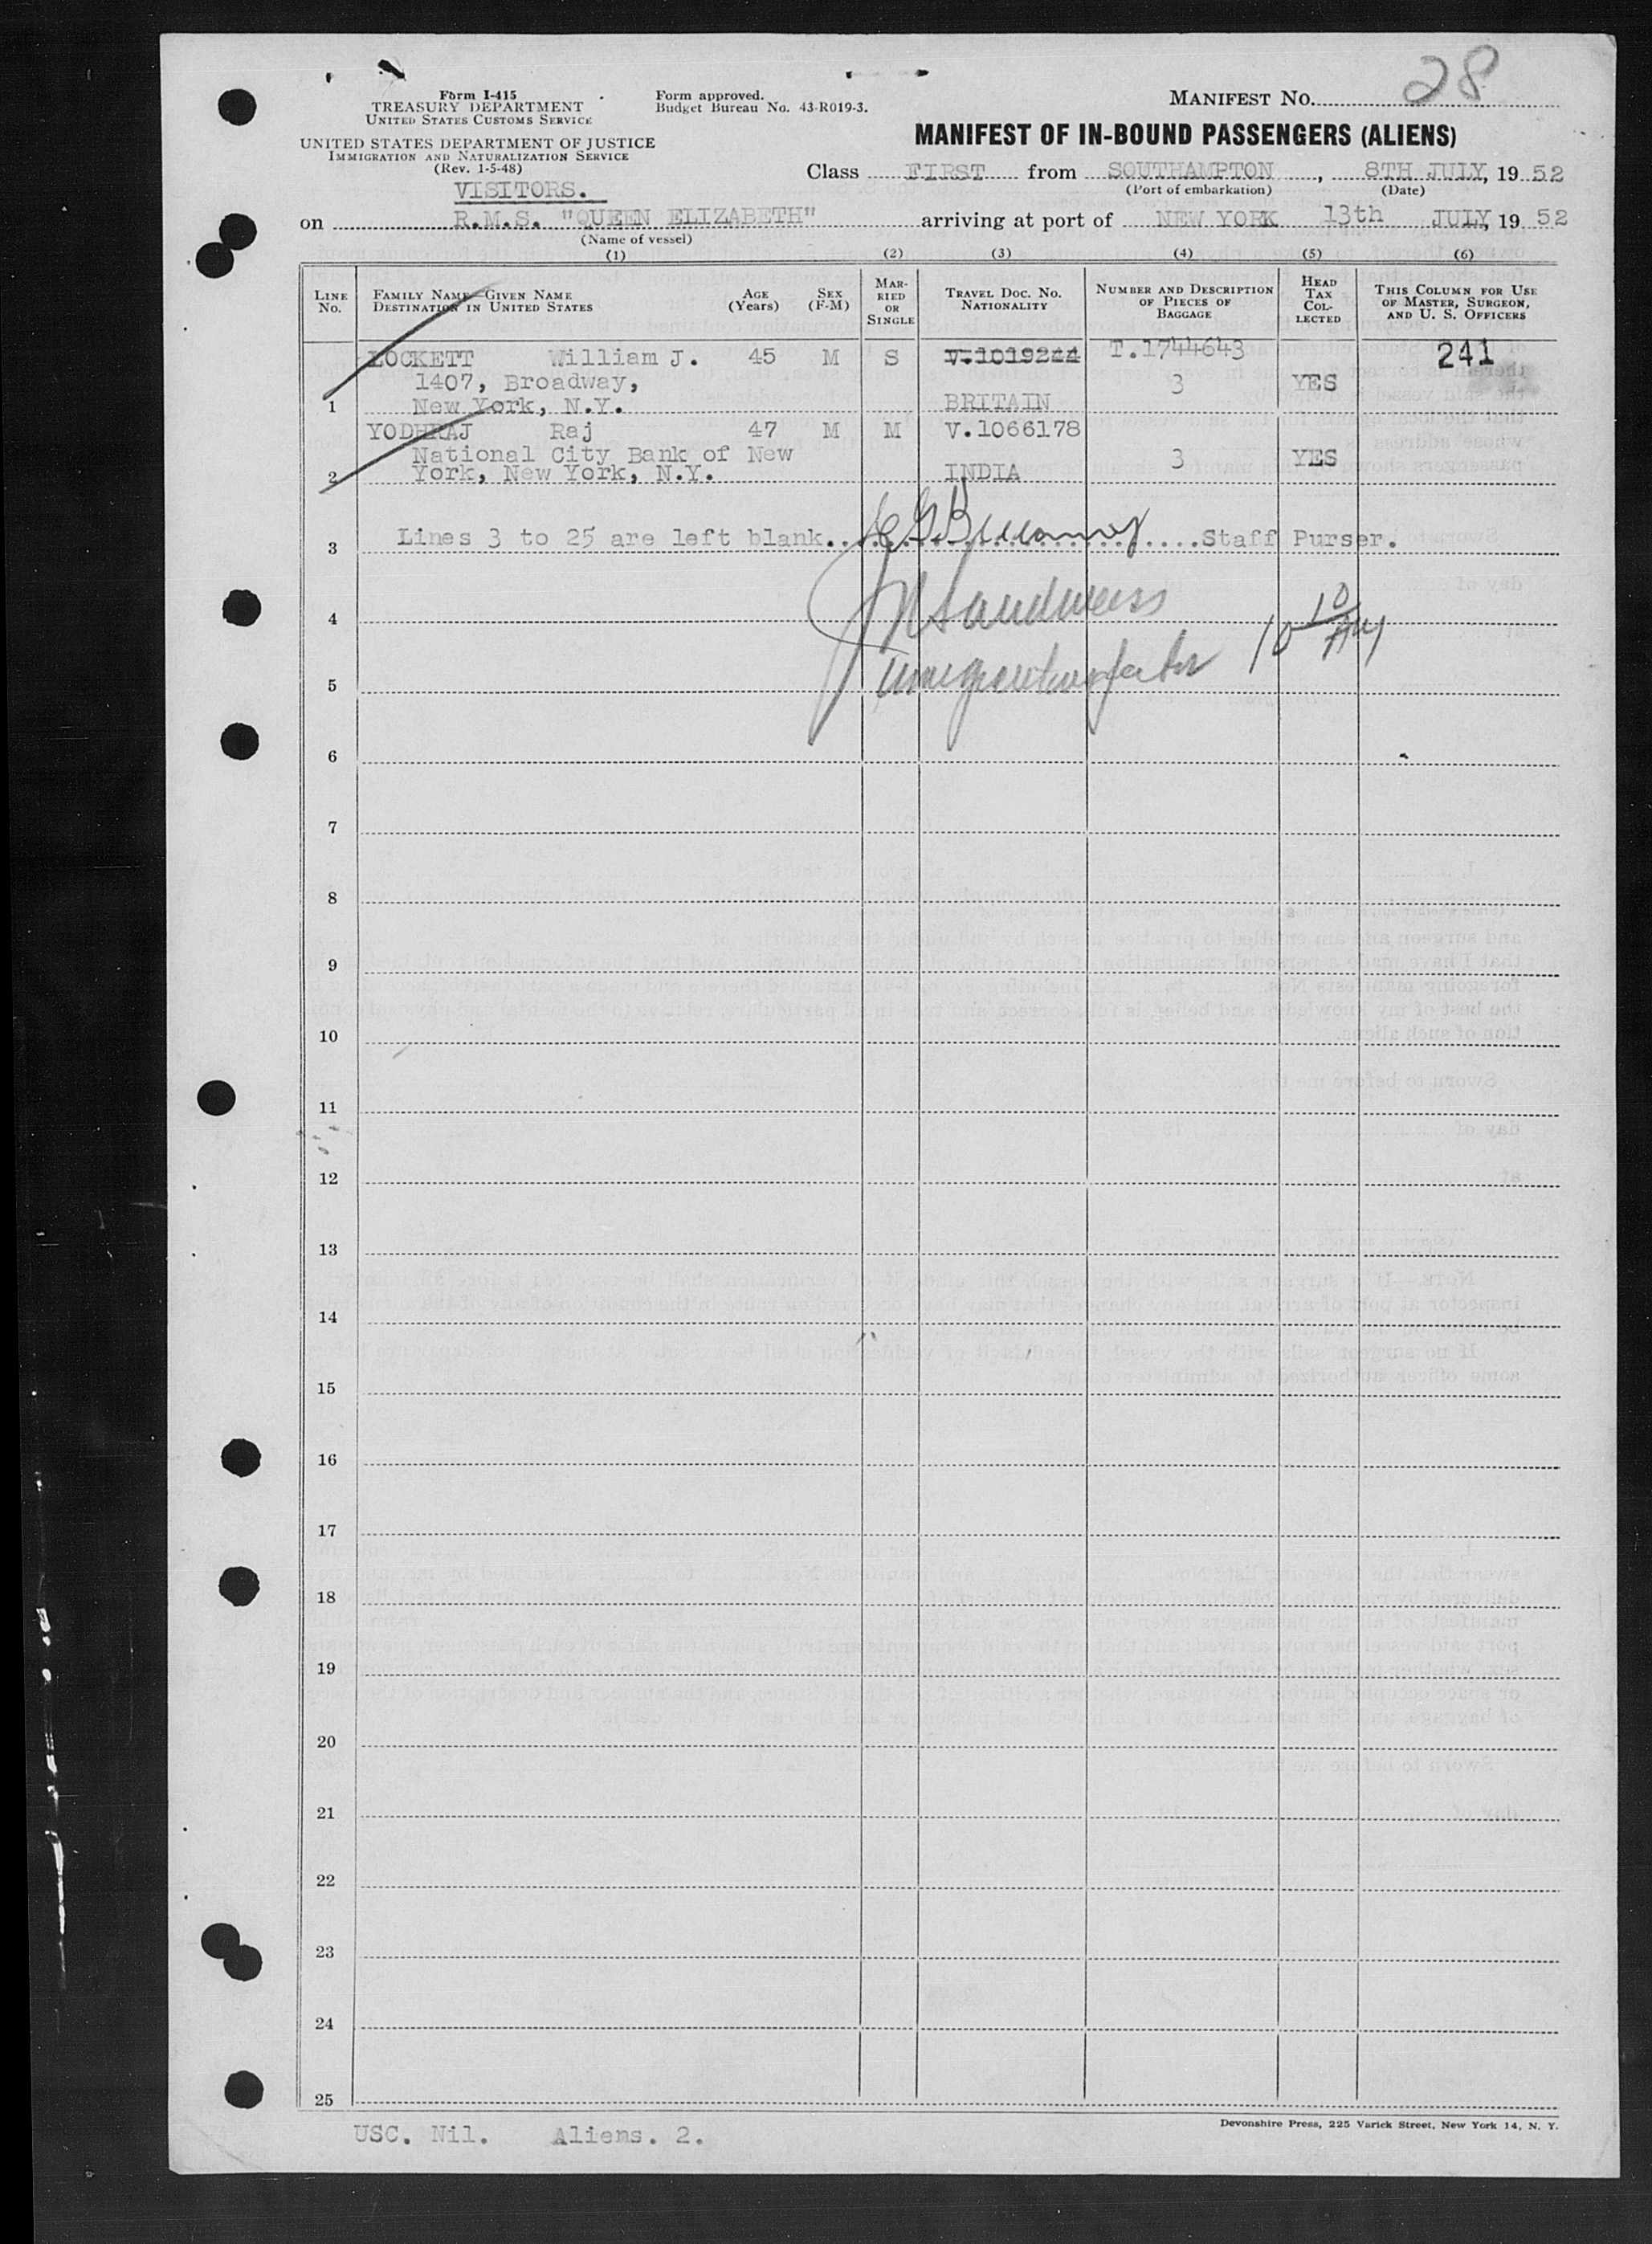 28
Form I-415
TREASURY DEPARTMENT
UNITED STATES CUSTOMS SERVICE
UNITED STATES DEPARTMENT OF JUSTICE
IMMIGRATION AND NATURALIZATION SERVICE
(Rev. 1-5-48)
VISITORS.
Form approved.
Budget Bureau No. 43-R019-3.
MANIFEST No.
MANIFEST OF IN-BOUND PASSENGERS (ALIENS)
Class FIRST from SOUTHAMPTON, 8TH JULY, 19 52
(Port of embarkation) (Date)
on R.M.S. "QUEEN ELIZABETH" arriving at port of NEW YORK 13th JULY, 19 52
(Name of vessel)
(1) (2) (3) (4) (5) (6)
LINE No. FAMILY NAME—GIVEN NAME DESTINATION IN UNITED STATES AGE (Years) SEX (F-M) MARRIED OR SINGLE TRAVEL DOC. NO. NATIONALITY NUMBER AND DESCRIPTION OF PIECES OF BAGGAGE HEAD TAX COLLECTED THIS COLUMN FOR USE OF MASTER, SURGEON, AND U. S. OFFICERS
LOCKETT William J. 45 M S V.1019244 T.1744643 241
1407, Broadway, 3 YES
1 New York, N.Y. BRITAIN
YODHRAJ Raj 47 M M V.1066178
National City Bank of New 3 YES
2 York, New York, N.Y. INDIA
3 Lines 3 to 25 are left blank. Staff Purser.
4 Sandweiss 10 10 AM
5
6
7
8
9
10
11
12
13
14
15
16
17
18
19
20
21
22
23
24
25
USC. Nil. Aliens. 2.
Devonshire Press, 225 Varick Street, New York 14, N. Y.